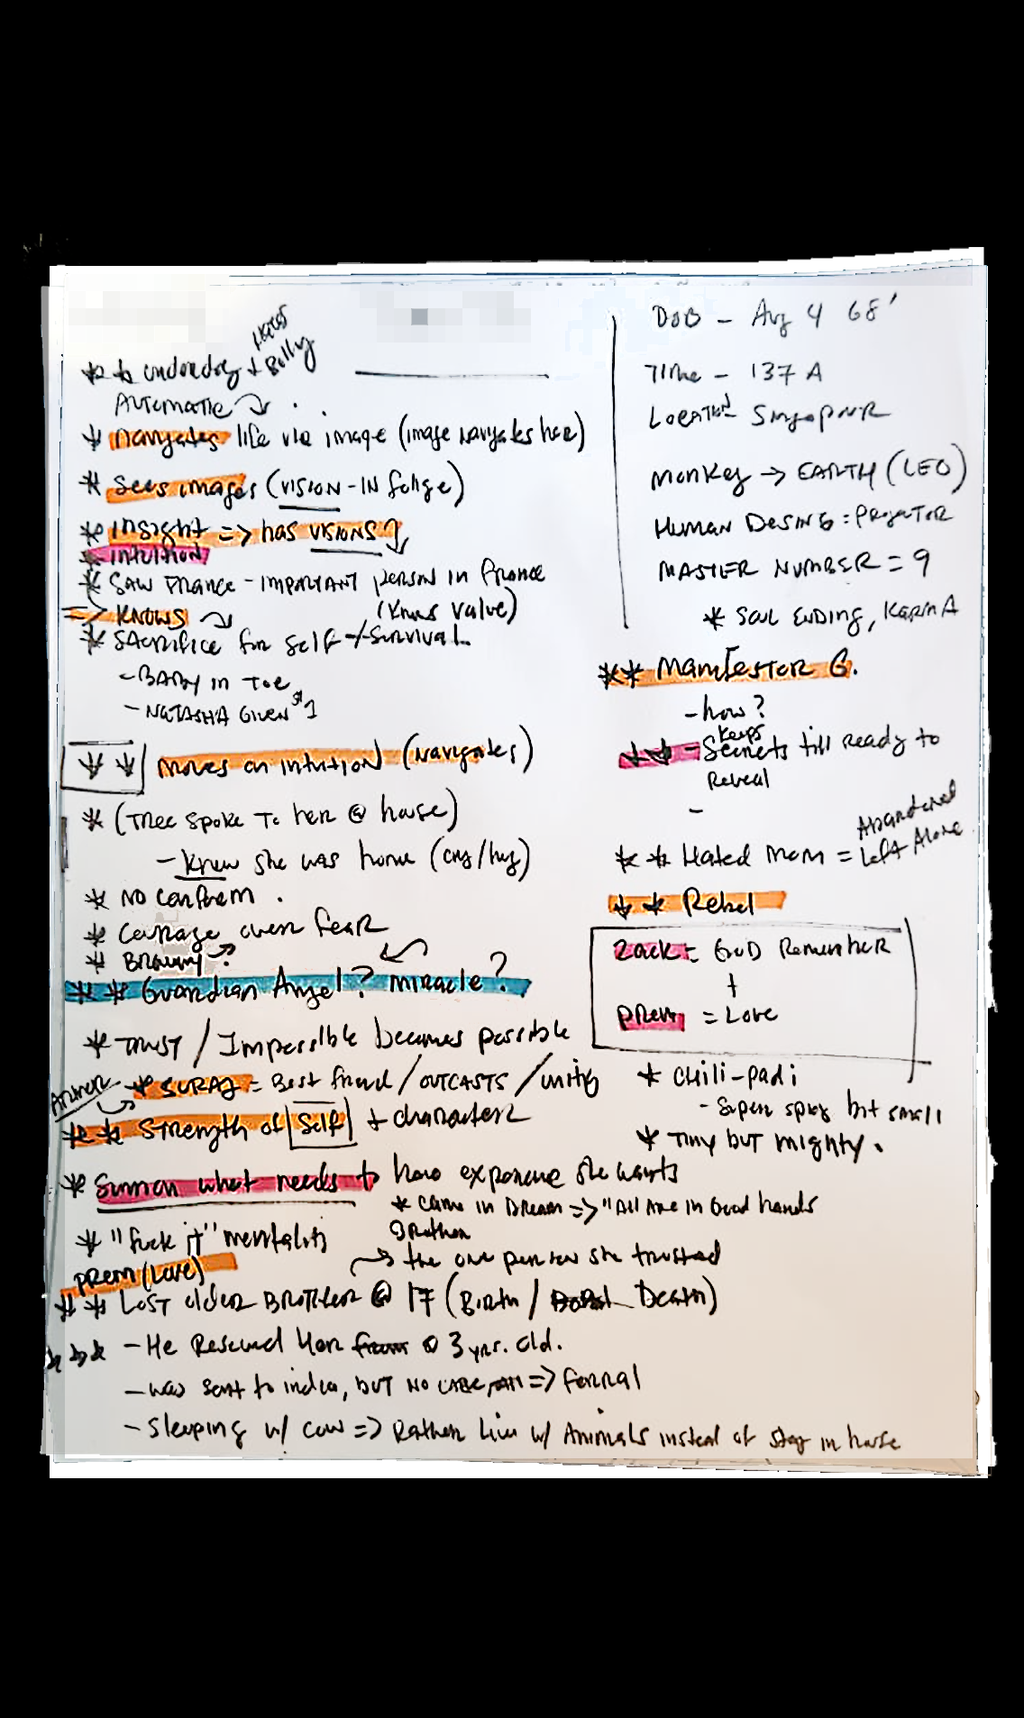 * * underdog + Hates Bully
Automatic
* navigates life via image (image navigates her)
* sees images (vision-in
* insight => has visions
- intuition
* Saw France - important person in France
=> Knows (Knows value)
* Sacrifice for self + survival
- Baby in toe
- Natasha Given 1st
* * moves on intuition (navigates)
* (Tree spoke to her @ house)
- knew she was home (cry/hug)
* No confirm.
* Courage over fear
* Bravery?
* * Guardian Angel? miracle?
* Trust / Impossible becomes possible
* Suraj = Best friend / outcasts / unity
* * Strength of Self + character
* Summon what needs to have experience she wants
* came in Dream => "All are in Good hands
* "fuck it" mentality
Prem (Love) the one person she trusted
* * Lost older Brother @ 17 (Birth / Death)
* * * - He Rescued her from @ 3 yrs. old.
- was sent to india, but no => ferral
- Sleeping w/ cow => Rather live w/ Animals instead of stay in house
DOB - Aug 4 68'
Time - 137 A
Location Singapore
Monkey → EARTH (LEO)
Human Desing : Projector
MASTER NUMBER = 9
* Soul Ending, Karma
* * Manifester G.
- how?
* * - keeps Secrets till ready to
Reveal
-
* * Hated mom = Abandoned
Left Alone
* * Rebel
Zack = God Remember
+
Prem = Love
* Chili-padi
- Super spicy but small
* Tiny but mighty.